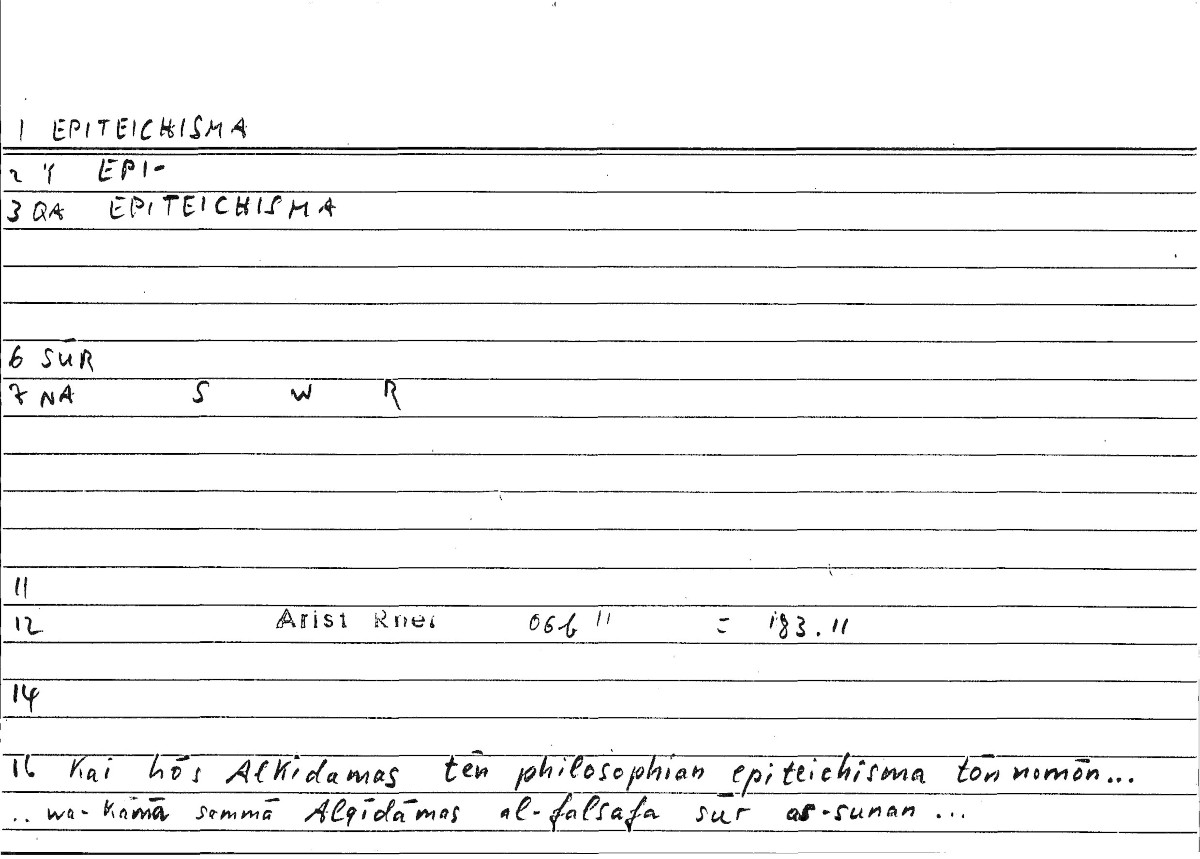 1 EPITEICHISMA
2 Y EPI-
3 QA EPITEICHISMA
6 SŪR
7 NA S W R
11
12 Arist Rhet 06b 11 = 183.11
14
16 Kai hōs Alkidamas tēn philosophian epiteichisma tōn nomōn...
.. wa-kamā sammā Alqīdāmas al-falsafa sūr as-sunan ...